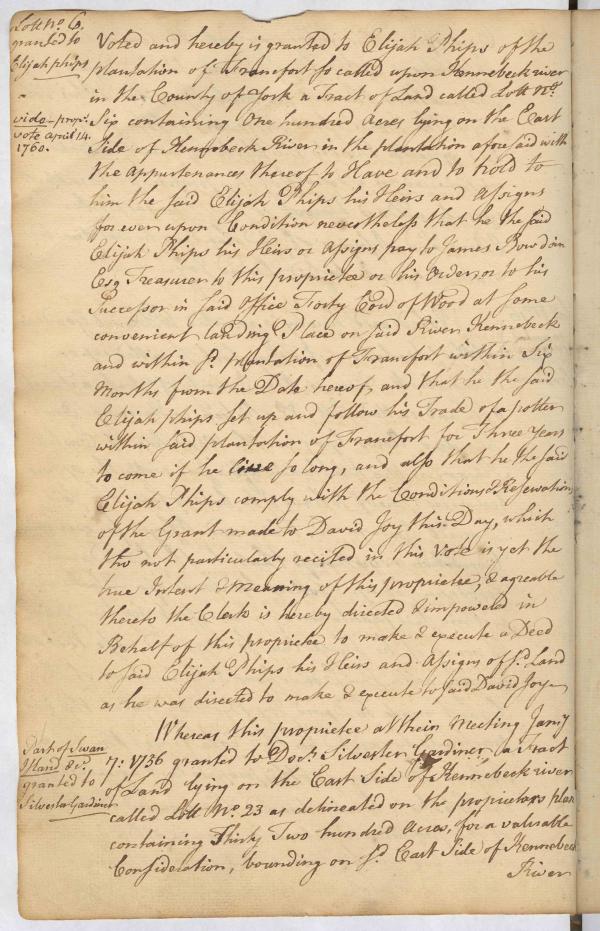 Lott No. 6.
granted to
Elijah phips
vide - propr.
vote april 14.
1760.
Voted and hereby is granted to Elijah Phips of the
plantation of Francfort so called upon Kennebeck river
in the County of York a Tract of Land called Lott No.
Six containing One hundred Acres lying on the East
Side of Kennebeck River in the plantation aforesaid with
the appurtenances thereof to Have and to Hold to
him the said Elijah Phips his Heirs and Assigns
for ever upon Condition nevertheless that he the said
Elijah Phips his Heirs or Assigns pay to James Bowdoin
Esq Treasurer to this proprietee or his Order or to his
Successor in said Office Forty Cord of Wood at some
convenient landing Place on said River Kennebeck
and within sd. plantation of Francfort within Six
Months from the Date hereof, and that he the said
Elijah phips set up and follow his Trade of a potter
within said plantation of Francfort for Three Years
to come if he live so long, and also that he the said
Elijah Phips comply with the Conditions & Reservation
of the Grant made to David Joy this Day, which
tho not particularly recited in this Vote is yet the
true Intent & Meaning of this proprietee, & agreable
thereto the Clerk is hereby directed & impowered in
Behalf of this proprietee to make & execute a Deed
to said Elijah Phips his Heirs and Assigns of sd. Land
as he was directed to make & execute to said David Joy
Part of Swan
Island &c.
granted to
Silvester Gardiner
Whereas this proprietee at their Meeting Jany
7: 1756 granted to Docr. Silvester Gardiner a Tract
of Land lying on the East Side of Kennebeck river
called Lott No. 23 as delineated on the proprietors plan
containing Thirty Two hundred Acres, for a valuable
Consideration, bounding on sd. East Side of Kennebeck
River